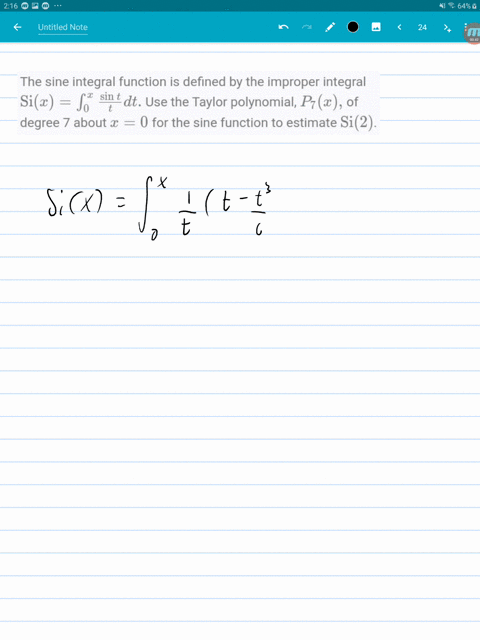 2:16 64%
Untitled Note 24
The sine integral function is defined by the improper integral
Si(x) = ∫₀ˣ sin t / t dt. Use the Taylor polynomial, P₇(x), of
degree 7 about x = 0 for the sine function to estimate Si(2).
Si(x) = ∫₀ˣ 1/t ( t - t³/